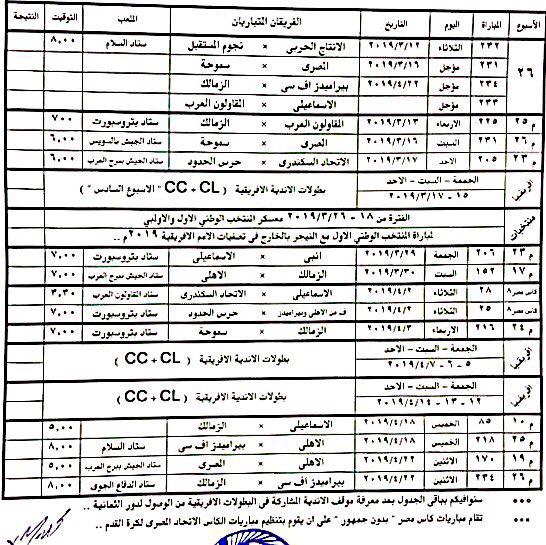 الأسبوع المباراة اليوم التاريخ الفريقان المتباريان الملعب التوقيت النتيجة
٢٦
٢٣٢ الثلاثاء ٢٠١٩/٣/١٢ الانتاج الحربى × نجوم المستقبل ستاد السلام ٨,٠٠
٢٣١ مؤجل ٢٠١٩/٣/١٦ المصرى × سموحة
٢٣٤ مؤجل ٢٠١٩/٤/٢٢ بيراميدز اف سى × الزمالك
٢٣٣ مؤجل الاسماعيلى × المقاولون العرب
م ٢٥ ٢٢٥ الاربعاء ٢٠١٩/٣/١٣ المقاولون العرب × الزمالك ستاد بتروسبورت ٧٠٠
م ٢٦ ٢٣١ السبت ٢٠١٩/٣/١٦ المصرى × سموحة ستاد الجيش بالسويس ٦,٠٠
م ٢٣ ٢٠٥ الاحد ٢٠١٩/٣/١٧ الاتحاد السكندرى × حرس الحدود ستاد الجيش ببرج العرب ٦,٠٠
افريقيا الجمعة – السبت – الاحد بطولات الاندية الافريقية ( CC + CL ) " الاسبوع السادس "
١٥ – ٢٠١٩/٣/١٧
منتخبات الفترة من ١٨ – ٢٠١٩/٣/٢٦ معسكر المنتخب الوطني الاول والاولمبي
لمباراة المنتخب الوطني الاول مع النيجر بالخارج فى تصفيات الامم الافريقية ٢٠١٩ م..
م ٢٣ ٢٠٦ الجمعة ٢٠١٩/٣/٢٩ انبى × الاسماعيلى ستاد بتروسبورت ٧,٠٠
م ١٧ ١٥٢ السبت ٢٠١٩/٣/٣٠ الزمالك × الاهلى ستاد الجيش ببرج العرب ٧,٠٠
كاس مصر ٨ ٢٨ الثلاثاء ٢٠١٩/٤/٢ الاسماعيلى × الاتحاد السكندرى ستاد المقاولون العرب ٣,٣٠
كاس مصر ٨ ٢٥ الثلاثاء ٢٠١٩/٤/٢ ف من الاهلى وبيراميدز × حرس الحدود ستاد بتروسبورت ٧,٠٠
م ٢٤ ٢١٦ الاربعاء ٢٠١٩/٤/٣ الزمالك × سموحة ستاد بتروسبورت ٧,٠٠
افريقيا الجمعة – السبت – الاحد بطولات الاندية الافريقية ( CC + CL )
٥ – ٦ – ٢٠١٩/٤/٧
افريقيا الجمعة – السبت – الاحد بطولات الاندية الافريقية ( CC + CL )
١٢ – ١٣ – ٢٠١٩/٤/١٤
م ١٠ ٨٥ الخميس ٢٠١٩/٤/١٨ الاسماعيلى × الزمالك ٥,٠٠
م ٢٥ ٢١٨ الخميس ٢٠١٩/٤/١٨ الاهلى × بيراميدز اف سى ستاد السلام ٨,٠٠
م ١٩ ١٧٠ الاثنين ٢٠١٩/٤/٢٢ الاهلى × المصرى ستاد الجيش ببرج العرب ٥,٠٠
م ٢٦ ٢٣٤ الاثنين ٢٠١٩/٤/٢٢ بيراميدز اف سى × الزمالك ستاد الدفاع الجوى ٨,٠٠
••• سنوافيكم بباقى الجدول بعد معرفة موقف الاندية المشاركة فى البطولات الافريقية من الوصول لدور الثمانية ..
••• تقام مباريات كاس مصر " بدون جمهور " على ان يقوم بتنظيم مباريات الكاس الاتحاد المصرى لكرة القدم ..